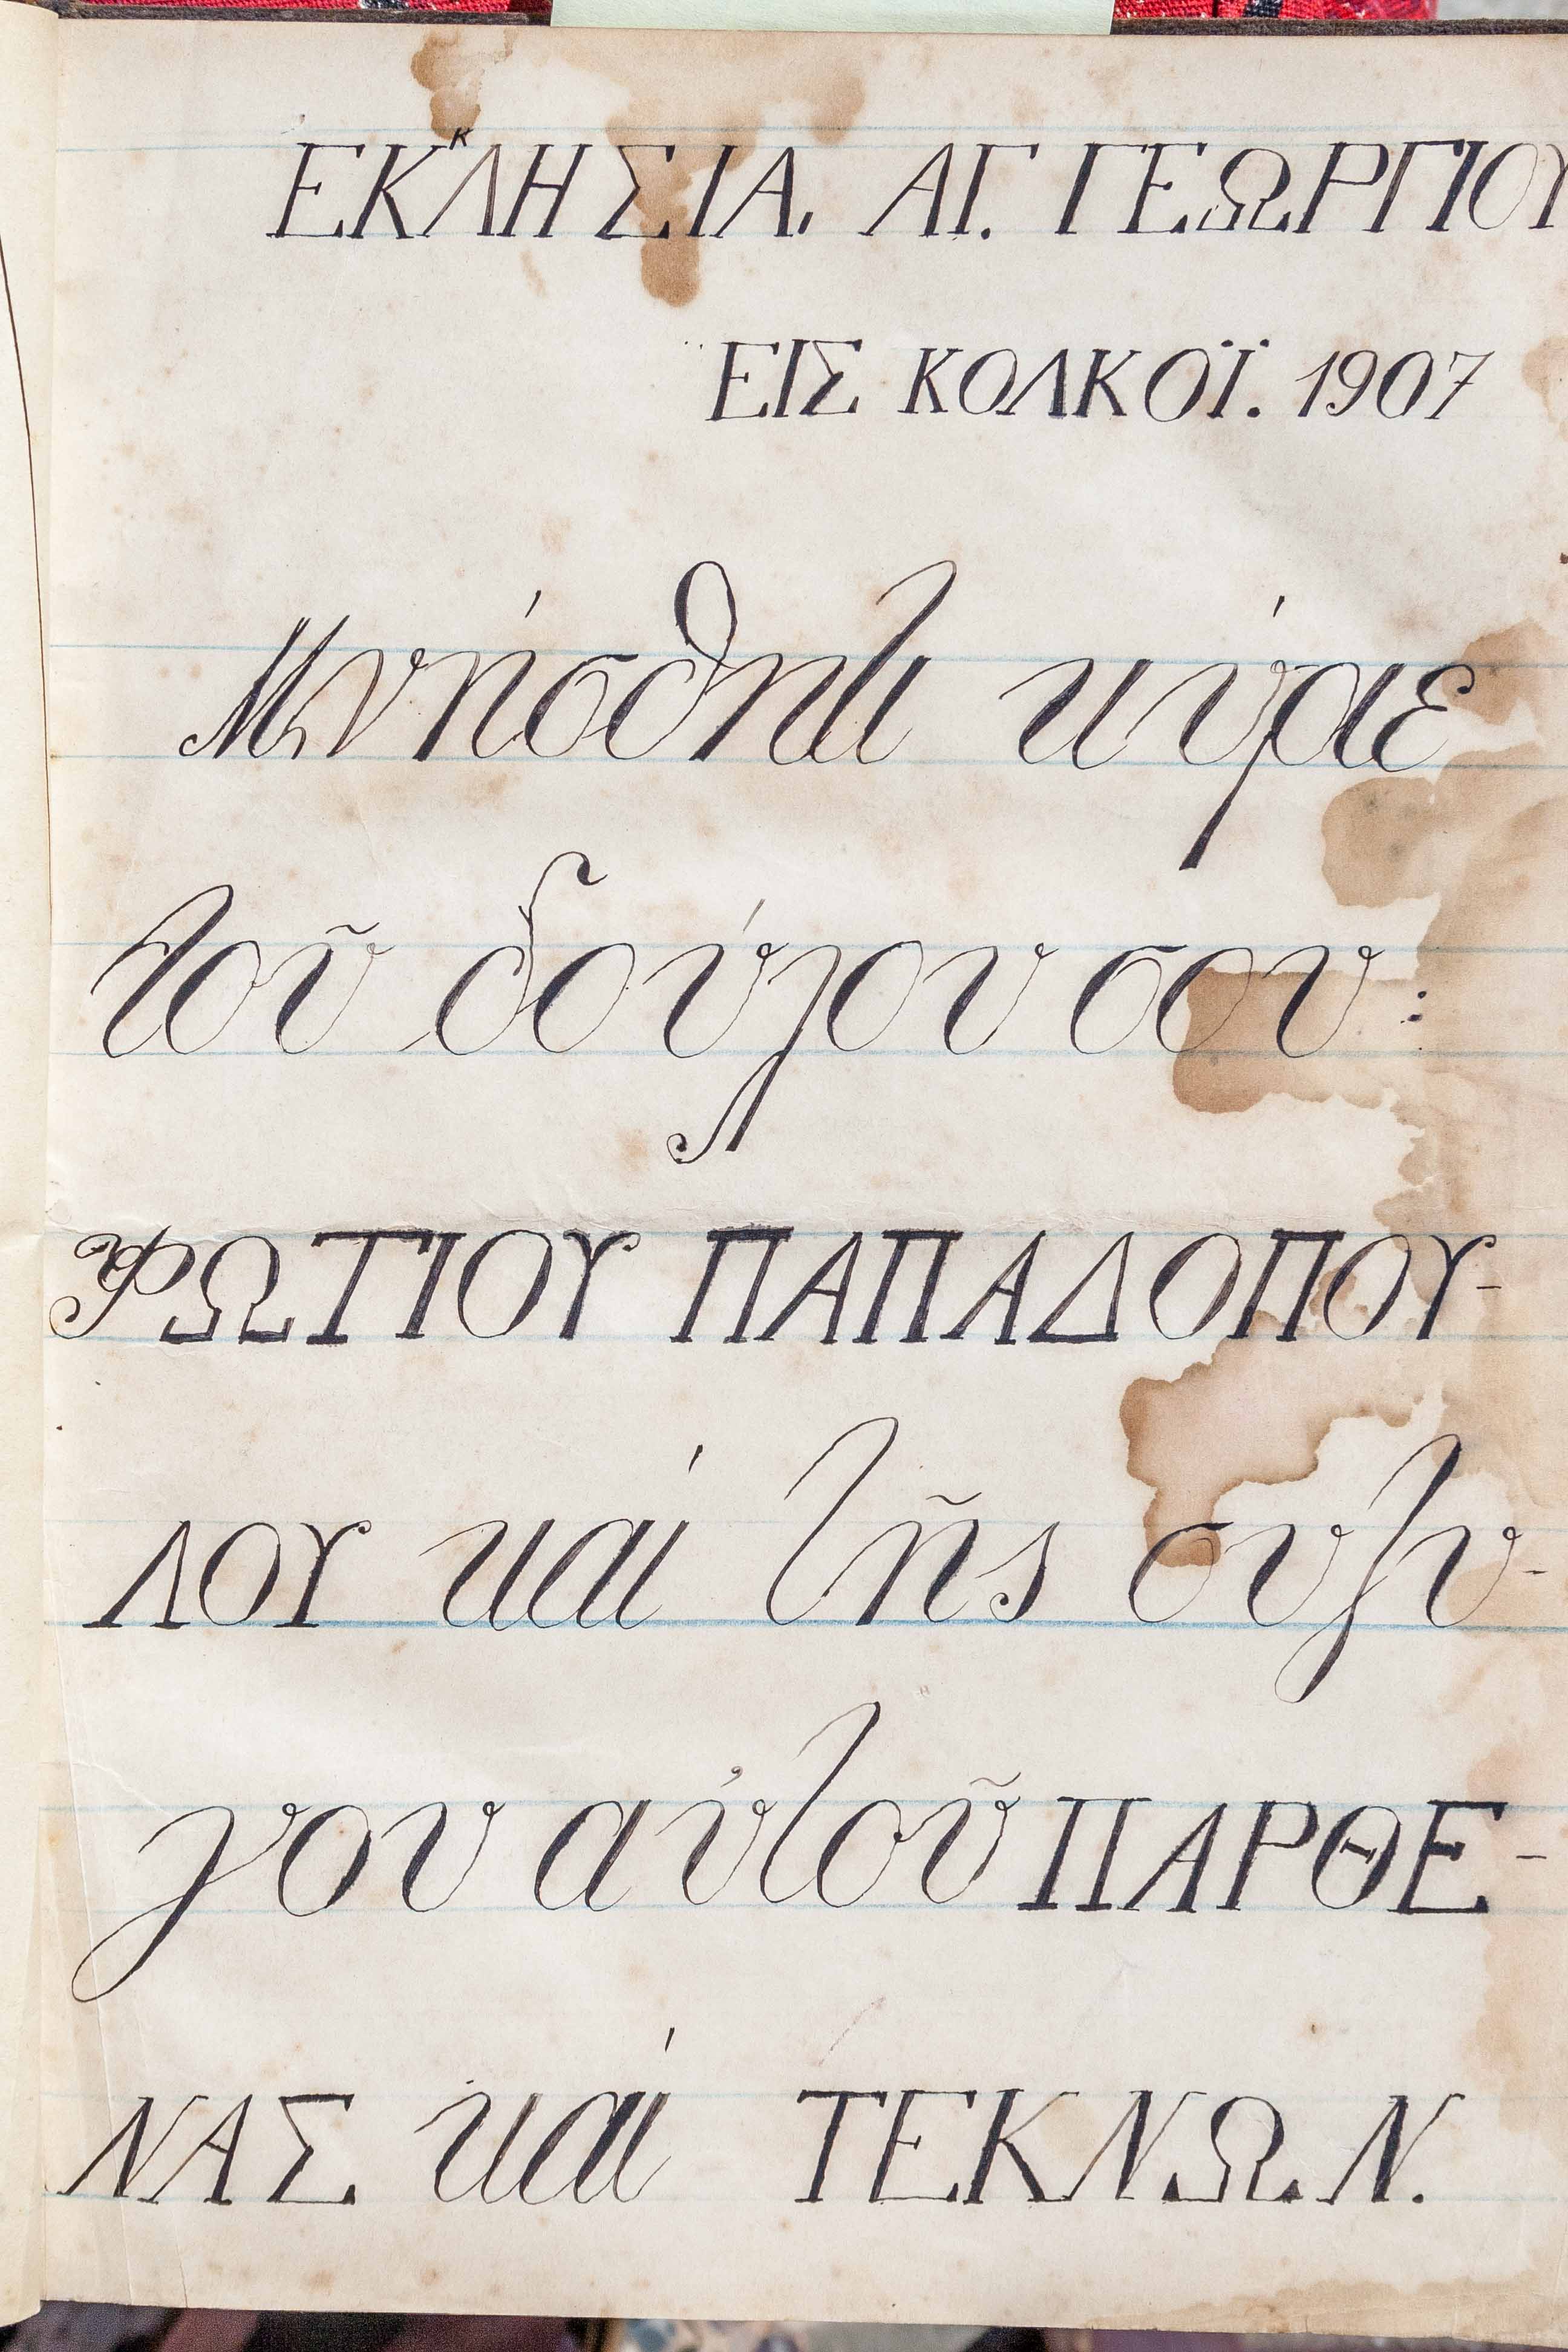 ΕΚΚΛΗΣΙΑ. ΑΓ. ΓΕΩΡΓΙΟΥ
ΕΙΣ ΚΟΛΚΟΪ. 1907
Μνήσθητι κύριε
τοῦ δούλου σου:
ΦΩΤΙΟΥ ΠΑΠΑΔΟΠΟΥ-
ΛΟΥ καί τῆς συζυ-
γου αὐτοῦ ΠΑΡΘΕ-
ΝΑΣ καί ΤΕΚΝΩΝ.